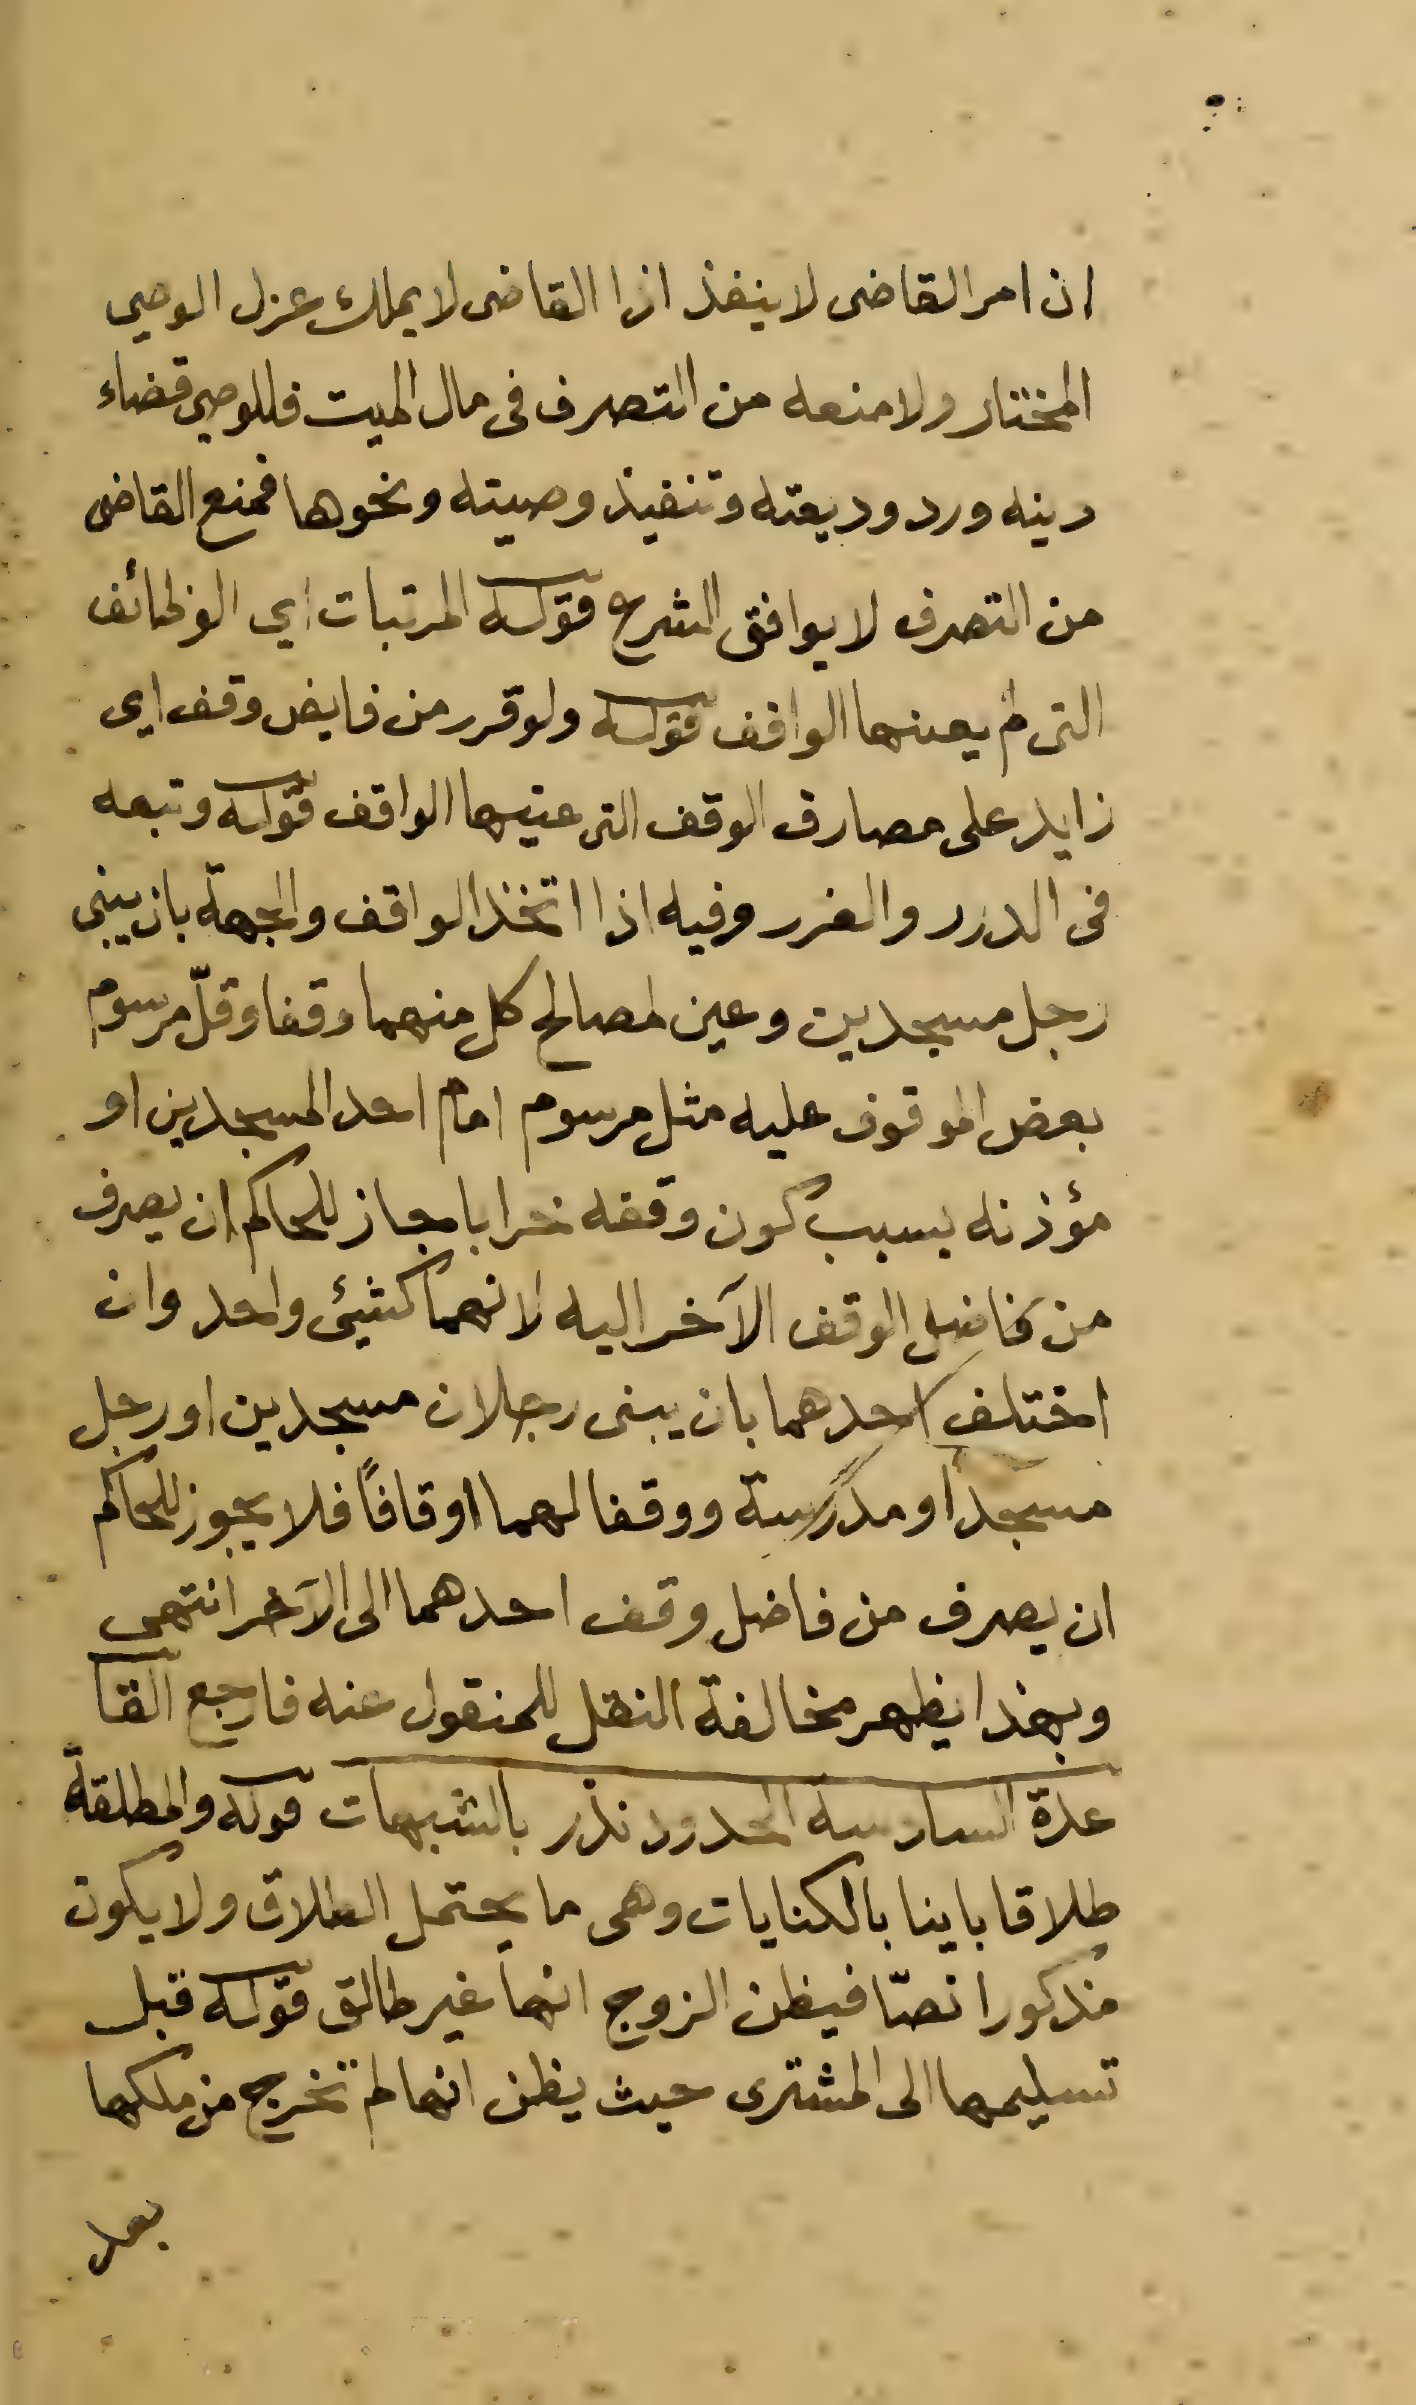 ان امر القاضى لا ينفذ اذا القاضى لا يملك عزل الوصي
المختار ولا منعه من التصرف فى مال الميت فللوصى قضاء
دينه ورد وديعته وتنفيذ وصيته ونحوها فمنع القاضى
من التصرف لا يوافق الشرع قوله المرتبات اي الوظائف
التى لم يعنها الواقف قوله ولو قرر من فايض وقف اى
زايد على مصارف الوقف التى عينها الواقف قوله وتبعه
فى الدرر والغرر وفيه اذا اتخذ الواقف والجهة بان يبنى
رجل مسجدين وعين لمصالح كل منهما وقفا وقلّ مرسوم
بعض الموقوف عليه مثل مرسوم امام احد المسجدين او
مؤذنه بسبب كون وقفه خرابا جاز للحاكم ان يصرف
من فاضل الوقف الآخر اليه لانهما كشيئ واحد وان
اختلف احدهما بان يبنى رجلان مسجدين او رجل
مسجدا ومدرسة ووقفا لهما اوقافاً فلا يجوز للحاكم
ان يصرف من فاضل وقف احدهما الى الآخر انتهى
وبهذا يظهر مخالفة النقل للمنقول عنه فارجع القا
عدة السادسة الحدود تدر بالشبهات قوله والمطلقة
طلاقا باينا بالكنايات وهى ما يحتمل الطلاق ولا يكون
مذكورا نصّا فيظن الزوج انها غير طالق قوله قبل
تسليمها الى المشترى حيث يظن انها لم تخرج من ملكها
بعد